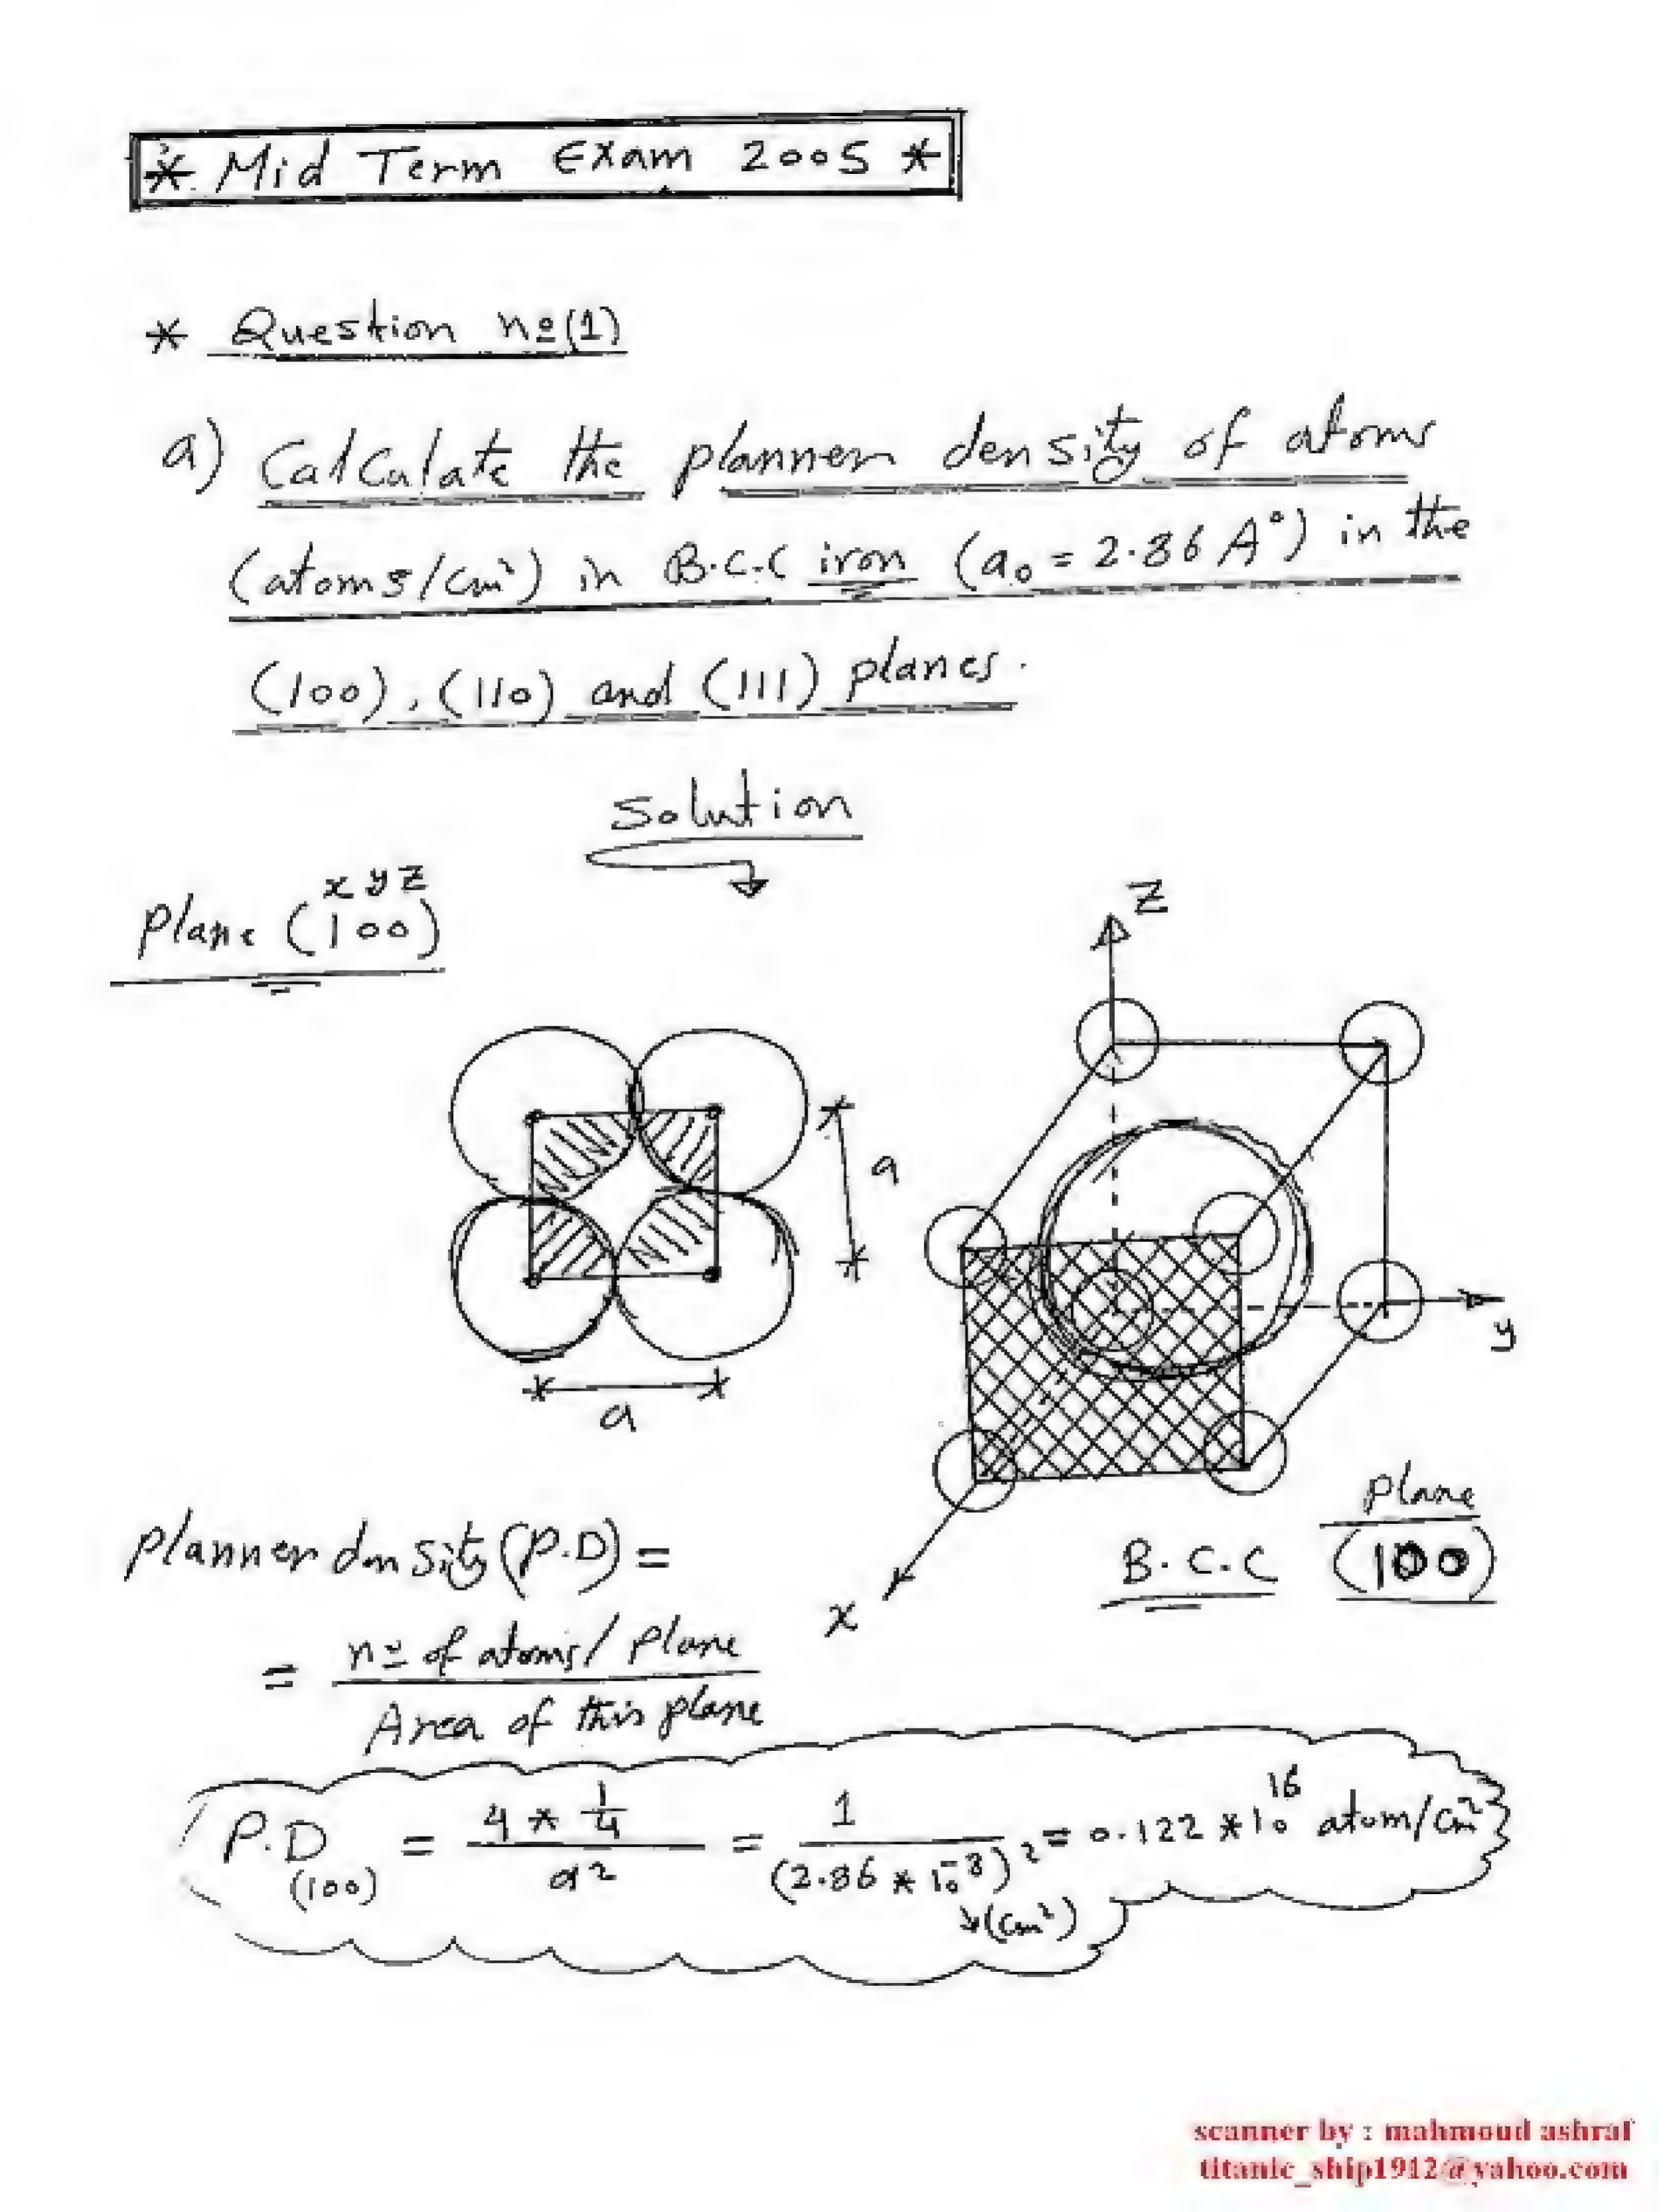 * Mid Term Exam 2005 *
* Question nº(1)
a) Calculate the planner density of atoms
(atoms/cm²) in B.C.C iron (a₀ = 2.86 A°) in the
(100), (110) and (111) planes.
Solution
x y z
plane (100)
Z
a
y
a
x
plane
B.C.C (100)
planner density (P.D) =
= nº of atoms / plane
Area of this plane
P.D (100) = 4 * 1/4 / a² = 1 / (2.86 * 10⁻⁸)² = 0.122 * 10¹⁶ atom/cm²
(cm²)
scanner by : mahmoud ashraf
titanic_ship1912@yahoo.com